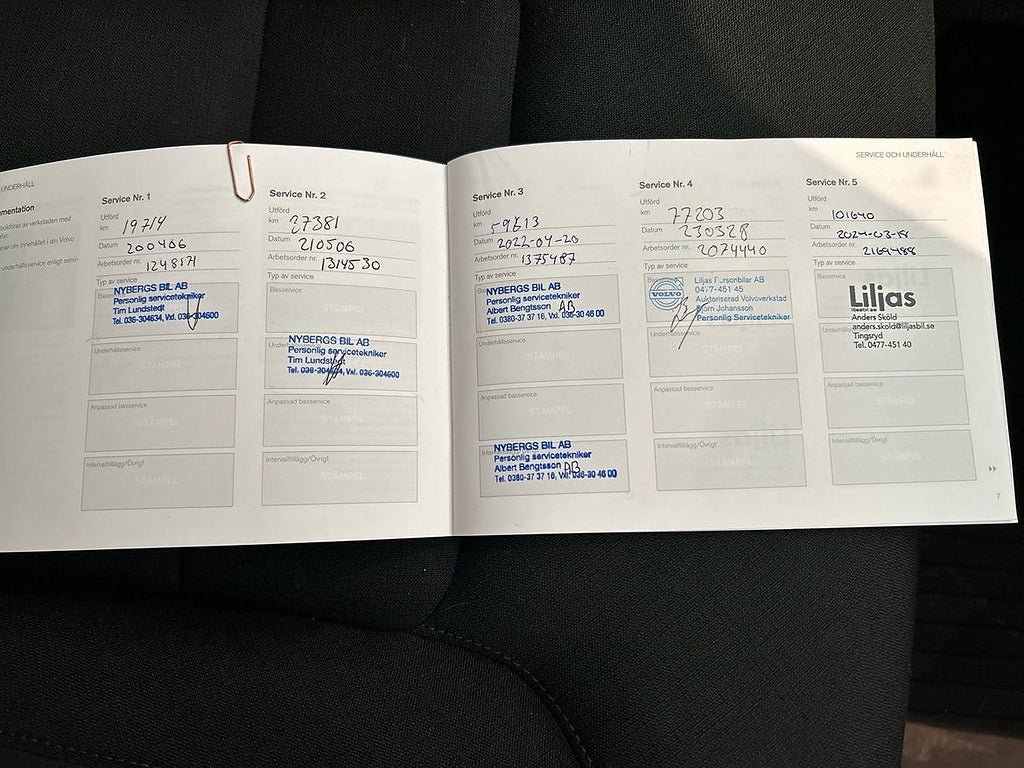 UNDERHÅLL
mentation
bokföras av verkstaden med
erar om innehållet i din Volvo
underhållsservice enligt servi-
Service Nr. 1
Utförd
km 19714
Datum 200406
Arbetsorder nr.
Typ av service
NYBERGS BIL AB
Personlig servicetekniker
Tim Lundstedt
Tel. 036-304634, Vxl. 036-304600
Underhållsservice
STÄMPEL
Anpassad basservice
STÄMPEL
Intervalltillägg/Övrigt
STÄMPEL
Service Nr. 2
Utförd
km 27381
Datum 210506
Arbetsorder nr. 1314530
Typ av service
Basservice
STÄMPEL
NYBERGS BIL AB
Personlig servicetekniker
Tim Lundstedt
Tel. 036-304634, Vxl. 036-304600
Anpassad basservice
STÄMPEL
Intervalltillägg/Övrigt
STÄMPEL
Service Nr. 3
Utförd
km
Datum 2022-04-20
Arbetsorder nr. 1375487
Typ av service
NYBERGS BIL AB
Personlig servicetekniker
Albert Bengtsson AB
Tel. 0380-37 37 16, Vxl. 036-30 46 00
Underhållsservice
STÄMPEL
Anpassad basservice
STÄMPEL
NYBERGS BIL AB
Personlig servicetekniker
Albert Bengtsson AB
Tel. 0380-37 37 16, Vxl. 036-30 46 00
SERVICE OCH UNDERHÅLL
Service Nr. 4
Utförd
km 77203
Datum 230328
Arbetsorder nr. 2074440
Typ av service
VOLVO
Liljas Personbilar AB
0477-451 45
Auktoriserad Volvoverkstad
Björn Johansson
Personlig Servicetekniker
Underhållsservice
STÄMPEL
Anpassad basservice
STÄMPEL
Intervalltillägg/Övrigt
STÄMPEL
Service Nr. 5
Utförd
km 101640
Datum
Arbetsorder nr. 2164488
Typ av service
Basservice
Liljas
liljasbil.se
Anders Sköld
anders.skold@liljasbil.se
Tingsryd
Tel. 0477-451 40
Anpassad basservice
STÄMPEL
Intervalltillägg/Övrigt
STÄMPEL
7